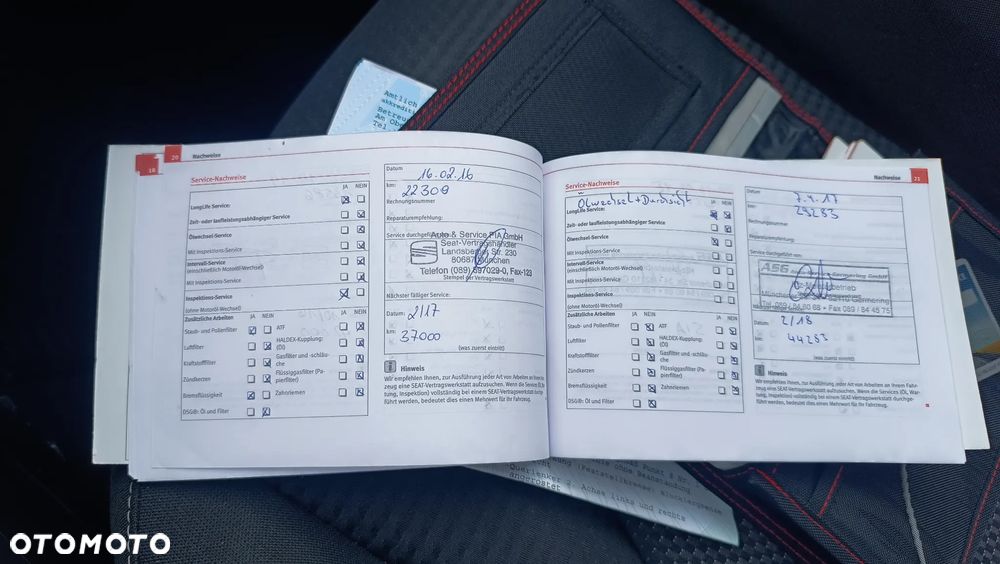 Amtlich
akkrediti
Betreu
Am Obe
Tel
18
20
Nachweise
Service-Nachweise
JA NEIN
LongLife Service:
Zeit- oder laufleistungsabhängiger Service
Ölwechsel-Service
Mit Inspektions-Service
Intervall-Service
(einschließlich Motoröl-Wechsel)
Mit Inspektions-Service
Inspektions-Service
(ohne Motoröl-Wechsel)
Zusätzliche Arbeiten JA NEIN JA NEIN
Staub- und Pollenfilter
ATF
Luftfilter
HALDEX-Kupplung:
(Öl)
Kraftstofffilter
Gasfilter und -schläu-
che
Zündkerzen
Flüssiggasfilter (Pa-
pierfilter)
Bremsflüssigkeit
Zahnriemen
DSG®: Öl und Filter
Datum
16.02.16
km:
22309
Rechnungsnummer
Reparaturempfehlung:
Service durchgeführt
Auto & Service PIA GmbH
Seat-Vertragshändler
Landsberger Str. 230
80687 München
Telefon (089) 897029-0, Fax-123
Stempel der Vertragswerkstatt
Nächster fälliger Service:
Datum:
2/17
km:
37000
(was zuerst eintritt)
Hinweis
Wir empfehlen Ihnen, zur Ausführung jeder Art von Arbeiten an Ihrem Fahr-
zeug eine SEAT-Vertragswerkstatt aufzusuchen. Wenn die Services (Öl, War-
tung, Inspektion) vollständig bei einem SEAT-Vertragswerkstatt durchge-
führt werden, bedeutet dies einen Mehrwert für Ihr Fahrzeug.
Nachweise
21
Service-Nachweise
Ölwechsel + Durchsicht
JA NEIN
LongLife Service:
Zeit- oder laufleistungsabhängiger Service
Ölwechsel-Service
Mit Inspektions-Service
Intervall-Service
(einschließlich Motoröl-Wechsel)
Mit Inspektions-Service
Inspektions-Service
(ohne Motoröl-Wechsel)
Zusätzliche Arbeiten JA NEIN JA NEIN
Staub- und Pollenfilter
ATF
Luftfilter
HALDEX-Kupplung:
(Öl)
Kraftstofffilter
Gasfilter und -schläu-
che
Zündkerzen
Flüssiggasfilter (Pa-
pierfilter)
Bremsflüssigkeit
Zahnriemen
DSG®: Öl und Filter
Datum
7.4.17
km:
29283
Rechnungsnummer
Reparaturempfehlung:
Service durchgeführt vom:
ASG Germering GmbH
Kfz-Meisterbetrieb
Germering
Fax 089 / 84 45 75
Datum:
2/18
km:
44283
(was zuerst eintritt)
Hinweis
Wir empfehlen Ihnen, zur Ausführung jeder Art von Arbeiten an Ihrem Fahr-
zeug eine SEAT-Vertragswerkstatt aufzusuchen. Wenn die Services (Öl, War-
tung, Inspektion) vollständig bei einem SEAT-Vertragswerkstatt durchge-
führt werden, bedeutet dies einen Mehrwert für Ihr Fahrzeug.
(Feststellbremse)
Querlenker 2. Achse links und rechts
angerostet
OTOMOTO